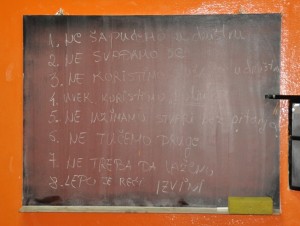 1. NE ŠAPUĆEMO
2. NE SVAĐAMO SE
3. NE KORISTIMO
4. UVEK KORISTIMO
5. NE UZIMAMO STVARI
6. NE TUČEMO DRUGE
7. NE TREBA DA LAŽEMO
8. LEPO JE REĆI IZVINI